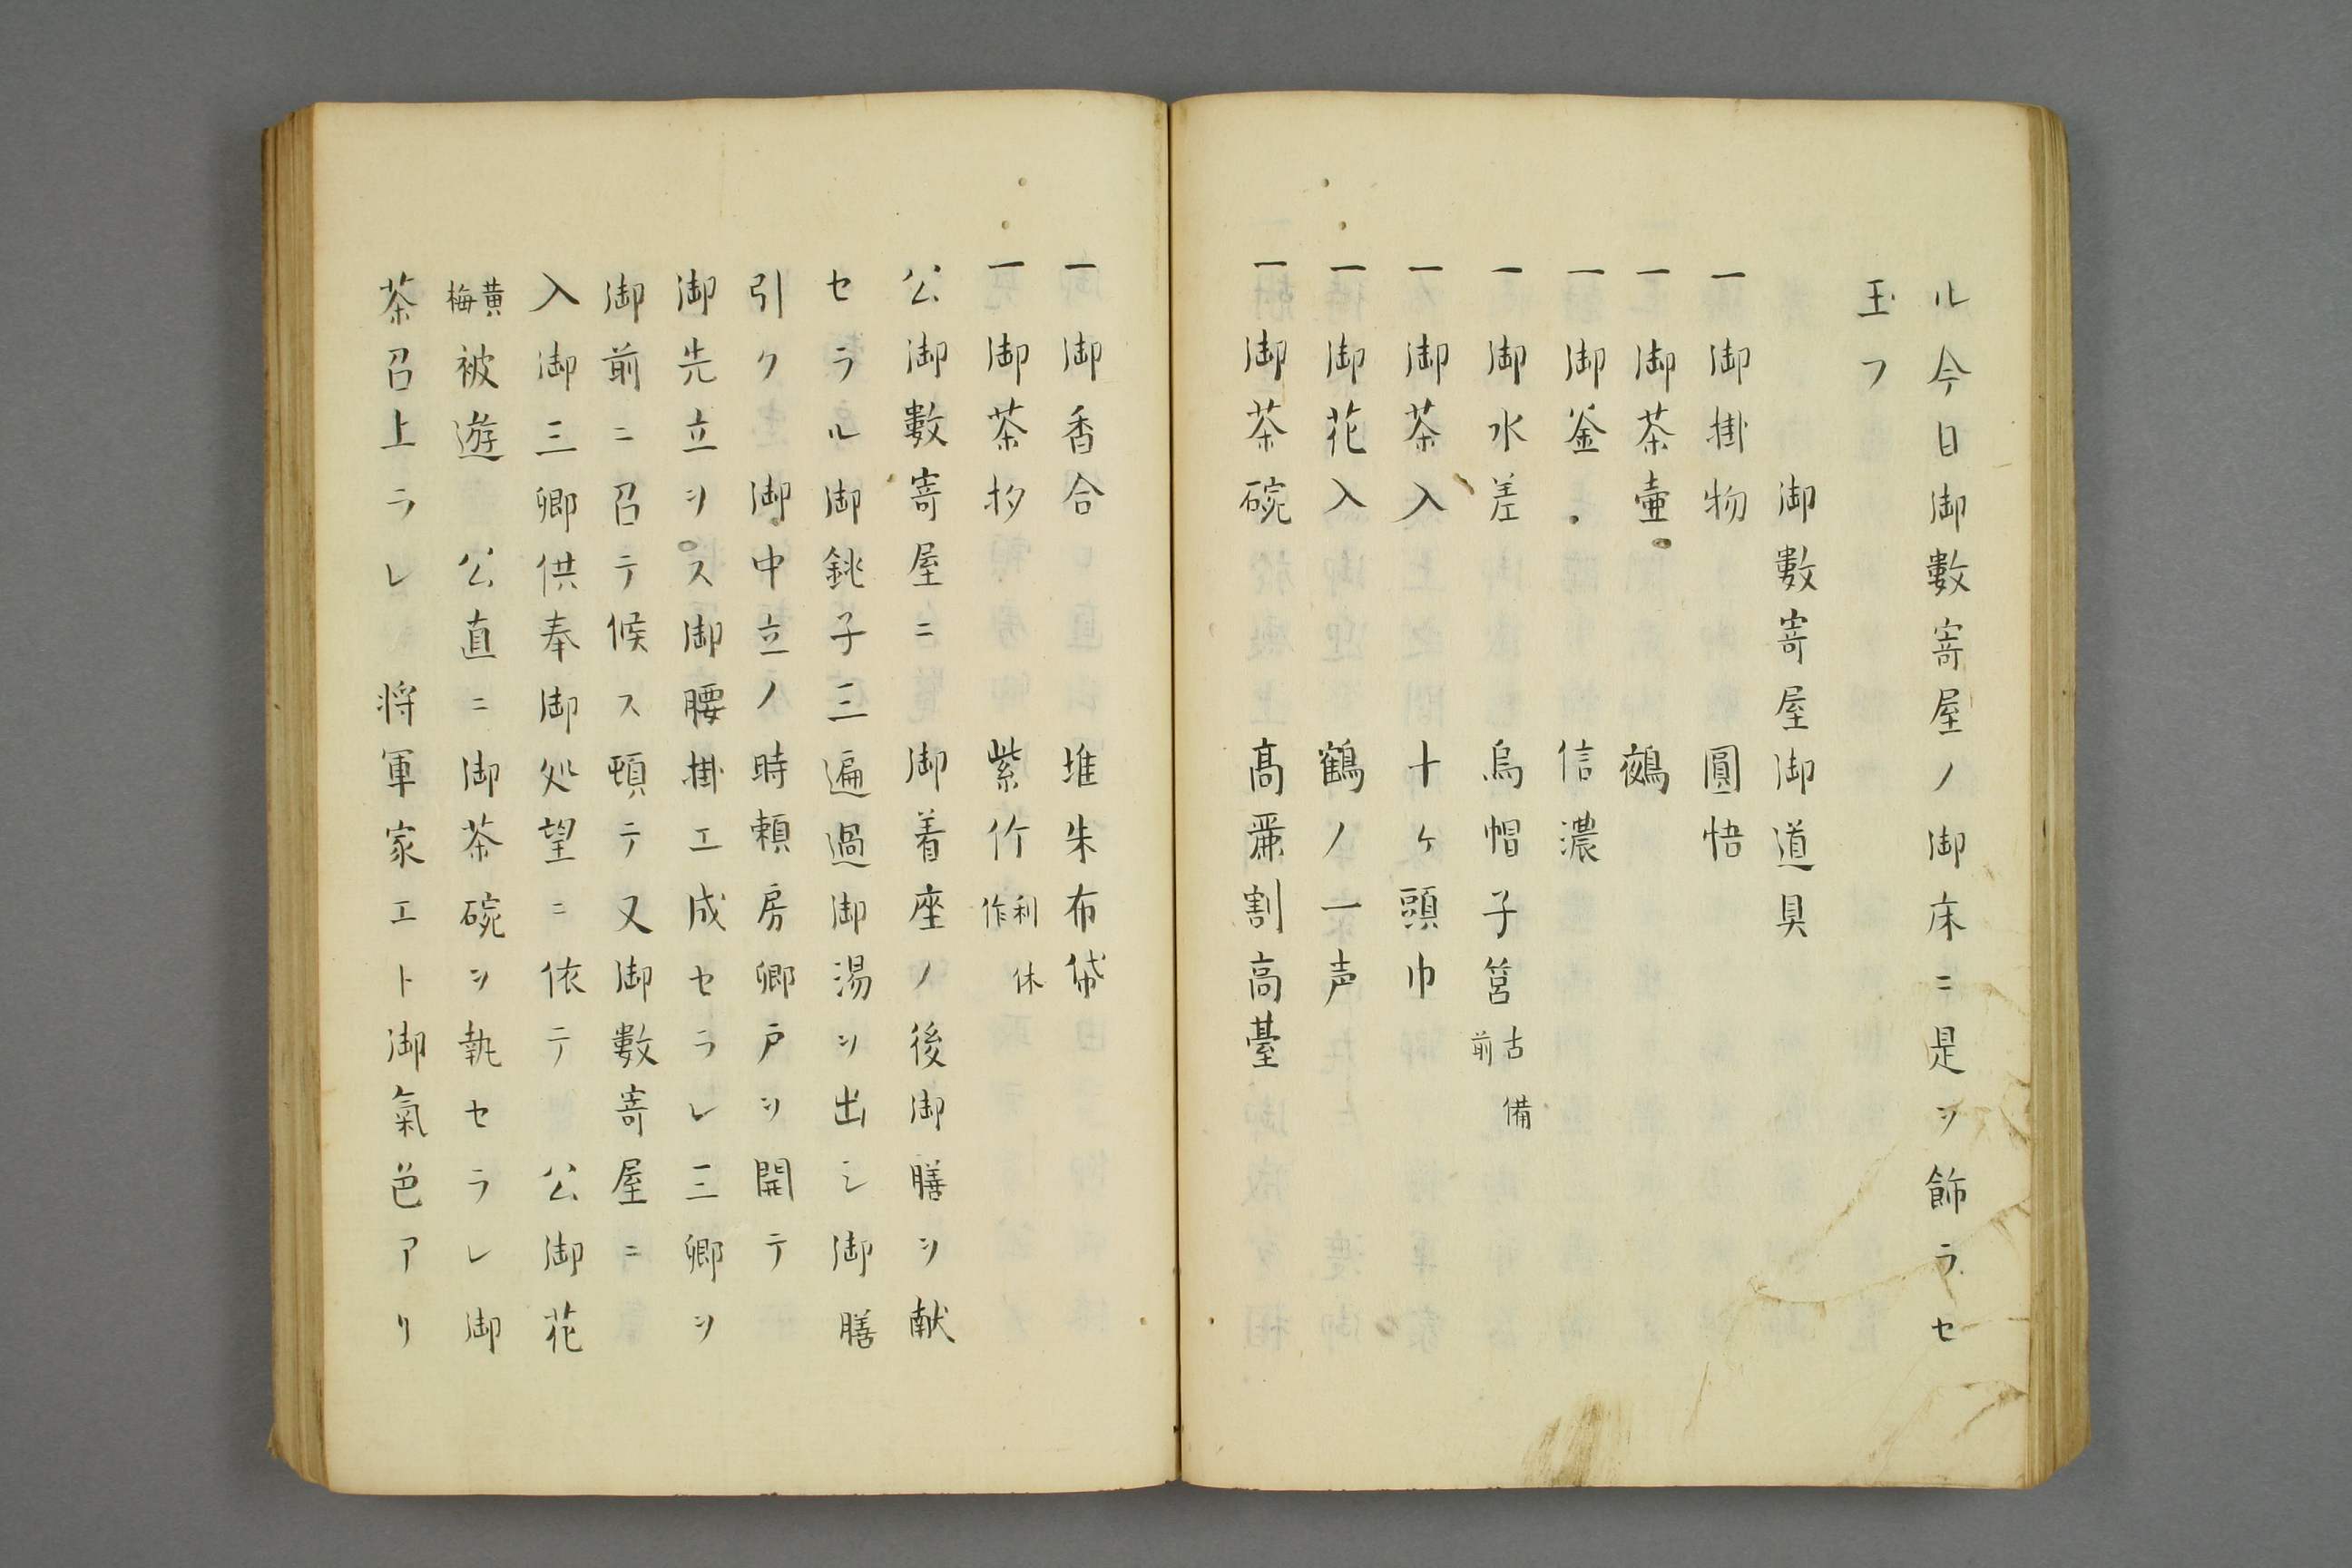 ル今日御數寄屋ノ御床ニ是ヲ飾ラセ
玉フ
御數寄屋御道具
一御掛物 圓悟
一御茶壷 鵺
一御釜 信濃
一御水差 烏帽子筥 古備前
一御茶入 十ヶ頭巾
一御花入 鶴ノ一声
一御茶碗 高麗割高臺
一御香合 堆朱布袋
一御茶杓 紫竹 利休作
公御數寄屋ニ 御着座ノ後御膳ヲ献
セラル御銚子三遍過御湯ヲ出シ御膳
引ク 御中立ノ時頼房卿戸ヲ開テ
御先立ヲス御腰掛エ成セラレ三卿ヲ
御前ニ召テ候ス頓テ又御數寄屋ニ
入御三卿供奉御処望ニ依テ 公御花
黄梅被遊 公直ニ御茶碗ヲ執セラレ御
茶召上ラレ 将軍家エト御氣色アリ